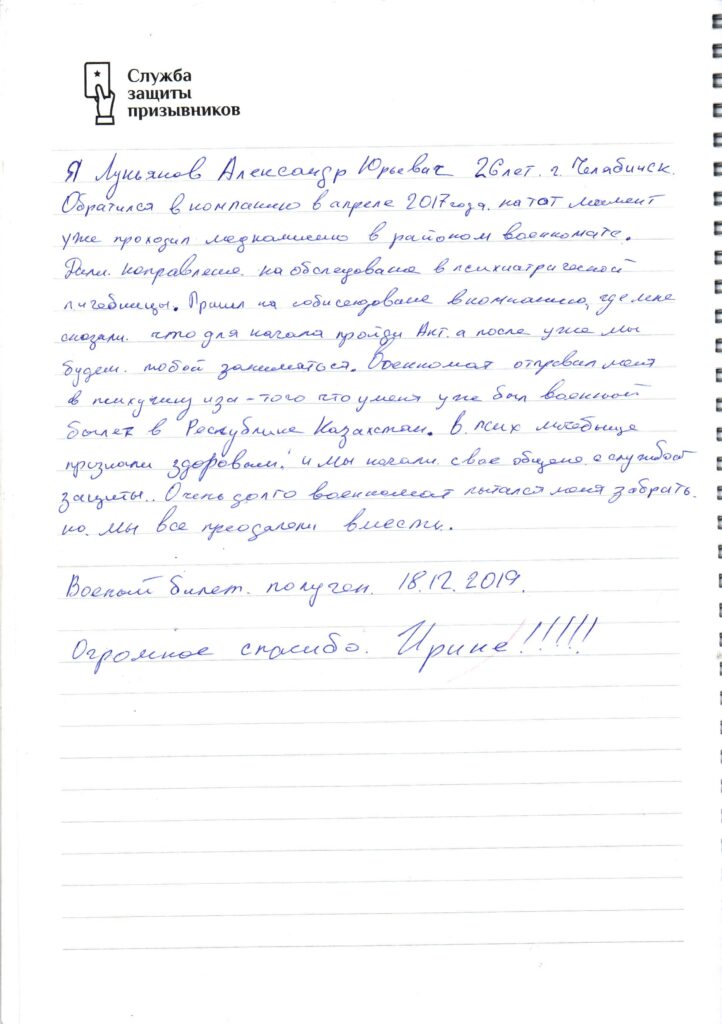 Служба
защиты
призывников
Я Лукьянов Александр Юрьевич 26 лет. г. Челябинск.
Обратился в компанию в апреле 2017 года. на тот момент
уже проходил медкомисию в районом военкомате.
Дали направление на обследование в психиатрической
личебницы. Пришел на собиседование в компанию, где мне
сказали. что для начала пройди Акт. а после уже мы
будем. тобой заниматься. Военкомат отправил меня
в психушку изза-того что уменя уже был военной
билет в Республике Казахстан. В псих личебнице
признали здоровым! и мы начали свое общение с службой
защиты.. Очень долго военкомат пытался меня забрать.
но. мы все преодалели вместе.
Военый билет. получен. 18.12.2019.
Огромное спасибо. Ирине!!!!!